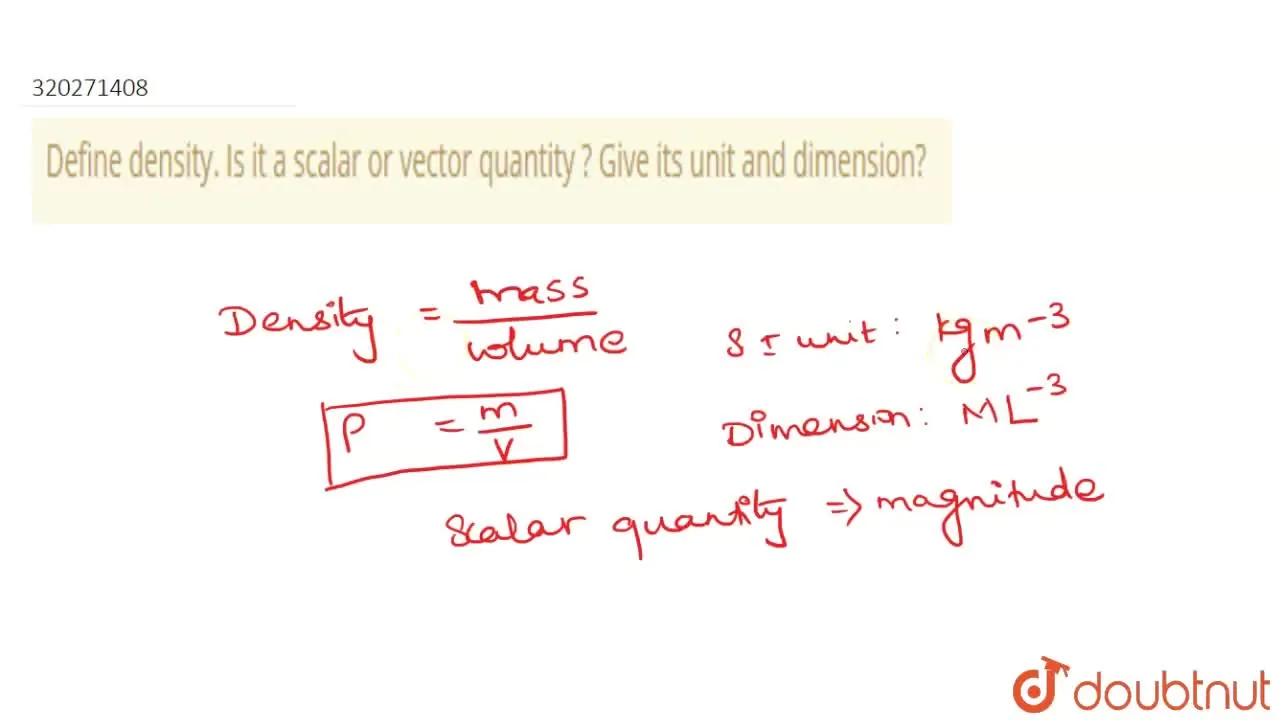 320271408
Define density. Is it a scalar or vector quantity ? Give its unit and dimension?
Density = mass / volume
ρ = m / V
SI unit : kg m⁻³
Dimension : ML⁻³
Scalar quantity => magnitude
doubtnut